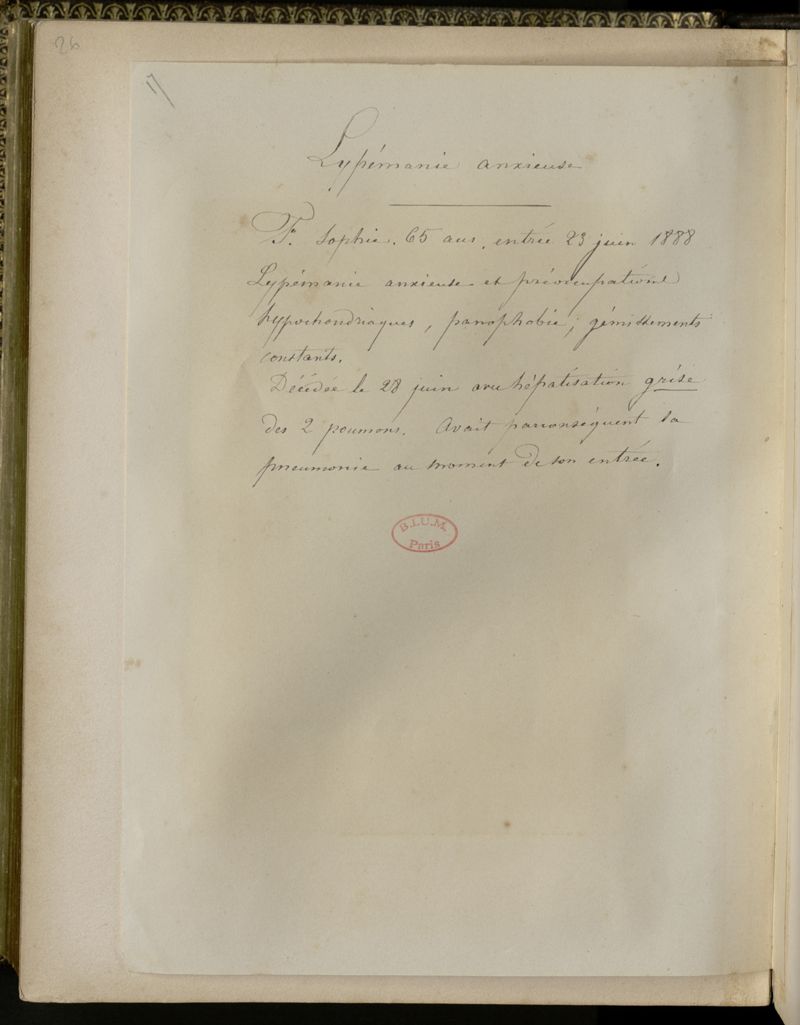 26
17
Lypémanie anxieuse
F. Sophie. 65 ans, entrée 23 juin 1888
Lypémanie anxieuse et préoccupations
hypochondriaques, panophobie, gémissements
constants.
Décédée le 28 juin avec hépatisation grise
des 2 poumons. Avait par conséquent sa
pneumonie au moment de son entrée.
B.I.U.M.
Paris